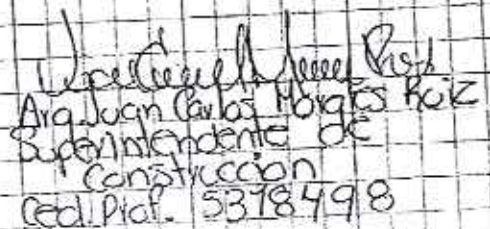 Arq. Juan Carlos Morales Ruiz
Superintendente de
Construccion
Ced. Prof. 5378498